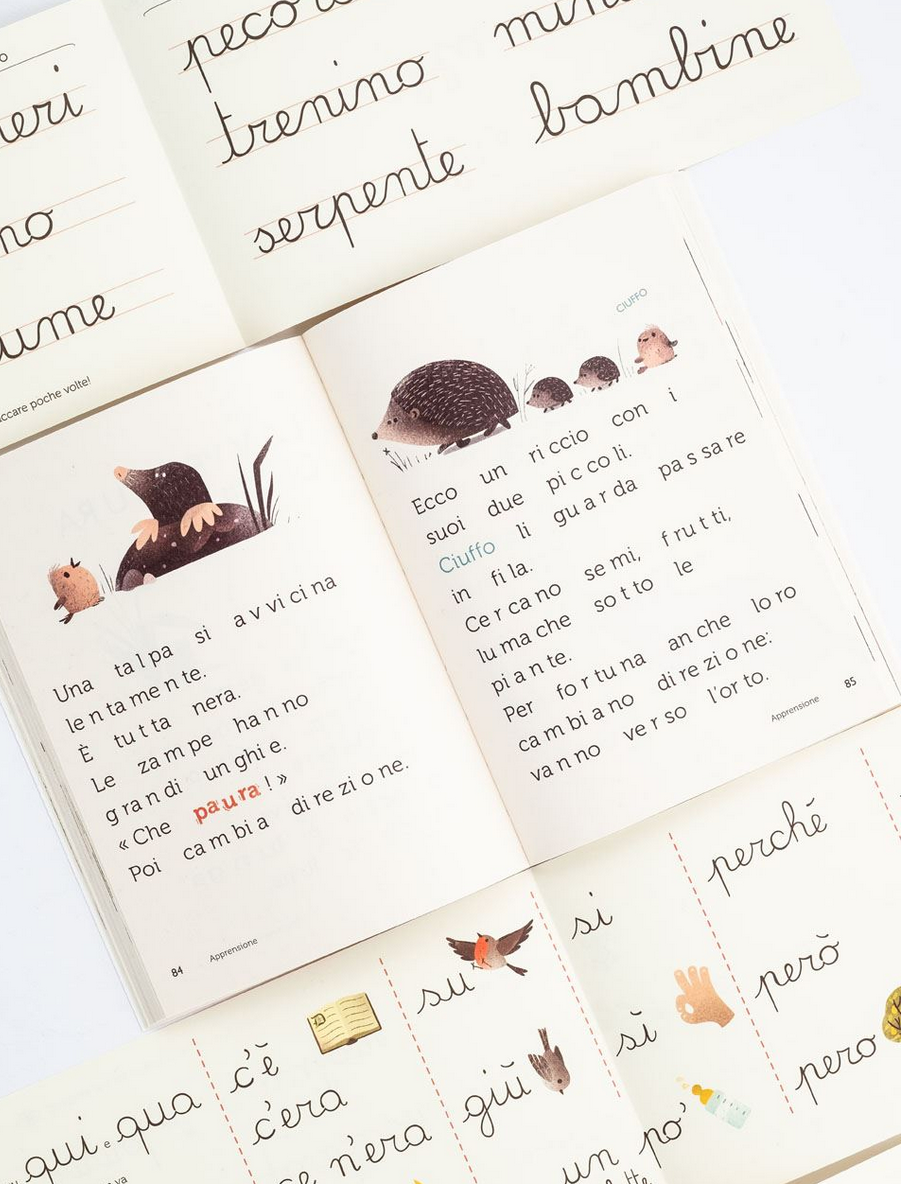 trenino
bambine
serpente
ccare poche volte!
Una talpa si avvicina
lentamente.
È tutta nera.
Le zampe hanno
grandi unghie.
«Che paura!»
Poi cambia direzione.
84 Apprensione
CIUFFO
Ecco un riccio con i
suoi due piccoli.
Ciuffo li guarda passare
in fila.
Cercano semi, frutti,
lumache sotto le
piante.
Per fortuna anche loro
cambiano direzione:
vanno verso l'orto.
Apprensione 85
qui e qua
c'è
c'era
ce n'era
su
giù
si
sì
un po'
perché
però
pero